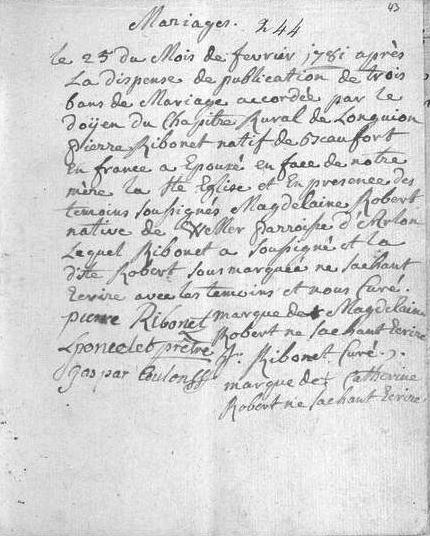 43
Mariages. 244
le 25 du Mois de fevrier 1781 après
La dispense de publication de trois
bans de Mariage accordée par le
doÿen du Chapitre Rural de Longuion
pierre Ribonet natif de
En france a Epousé en face de notre
mere la Ste Eglise et En presence des
temoins soussignés Magdelaine Robert
native de Weller parroisse d'Arlon
Lequel Ribonet a soussigné et la
dite Robert sousmarquée ne sachant
Ecrire avec les temoins et nous Curé.
pierre Ribonet marque de + Magdelaine
Robert ne sachant Ecrire
prêtre J. Ribonet Curé.
gaspar
marque de Catherine
Robert ne sachant Ecrire